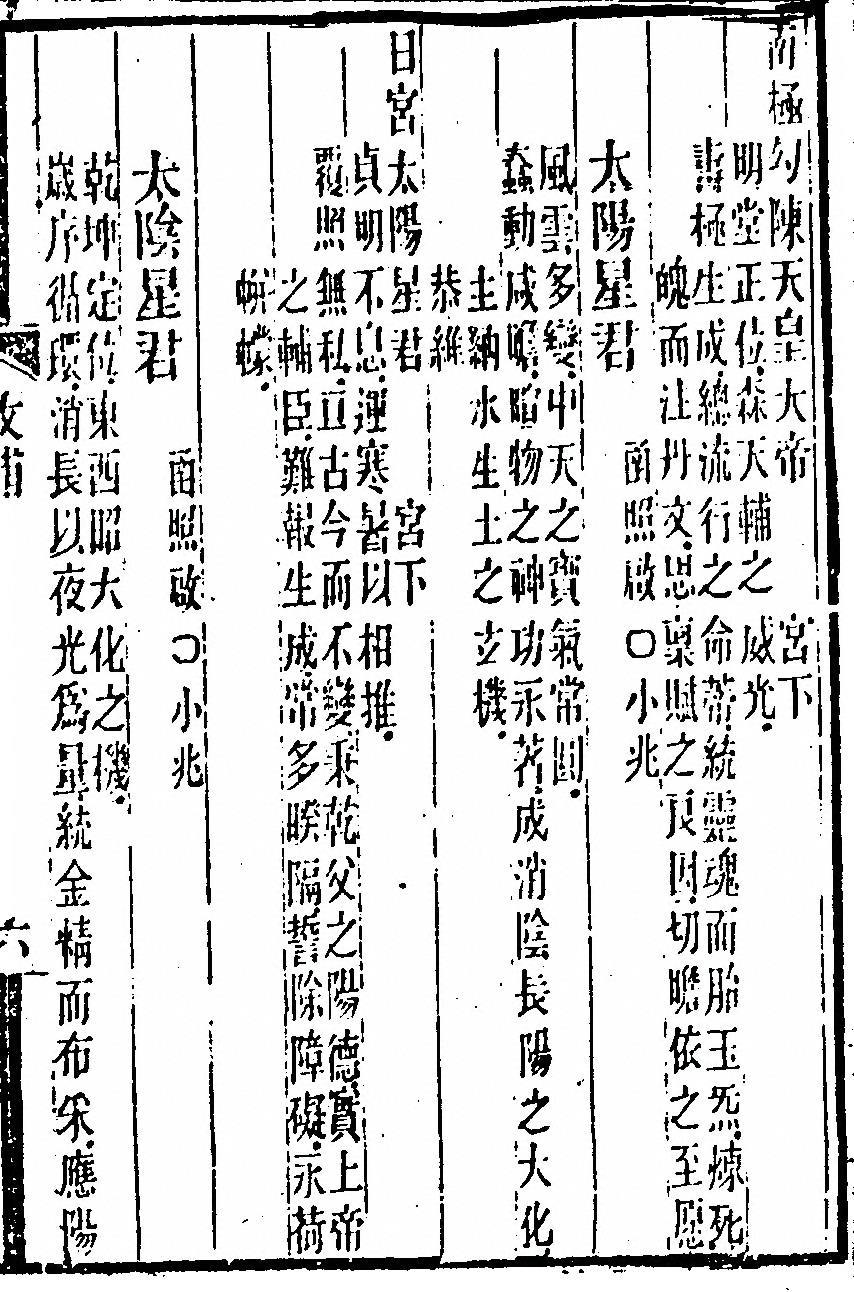 南極勾陳天皇大帝　宮下
明堂正位.森天輔之威光.
壽極生成.總流行之命蒂.統靈魂而胎玉炁.煉死
魄而注丹文.思稟賦之良因.切瞻依之至愿
太陽星君　函照啟○小兆
風雲多變.中天之寶氣常圓.
蠢動咸曦.暄物之神功永著.成消陰長陽之大化.
主納水生土之玄機.
恭維
日宮太陽星君　宮下
貞明不息.運寒暑以相推.
覆照無私.亘古今而不變.秉乾父之陽德.實上帝
之輔臣.難報生成.常多睽隔.誓除障礙.永荷
帲幪.
太陰星君　函照啟○小兆
乾坤定位.東西昭大化之機.
歲序循環.消長以夜光爲量.統金精而布采.應陽
六